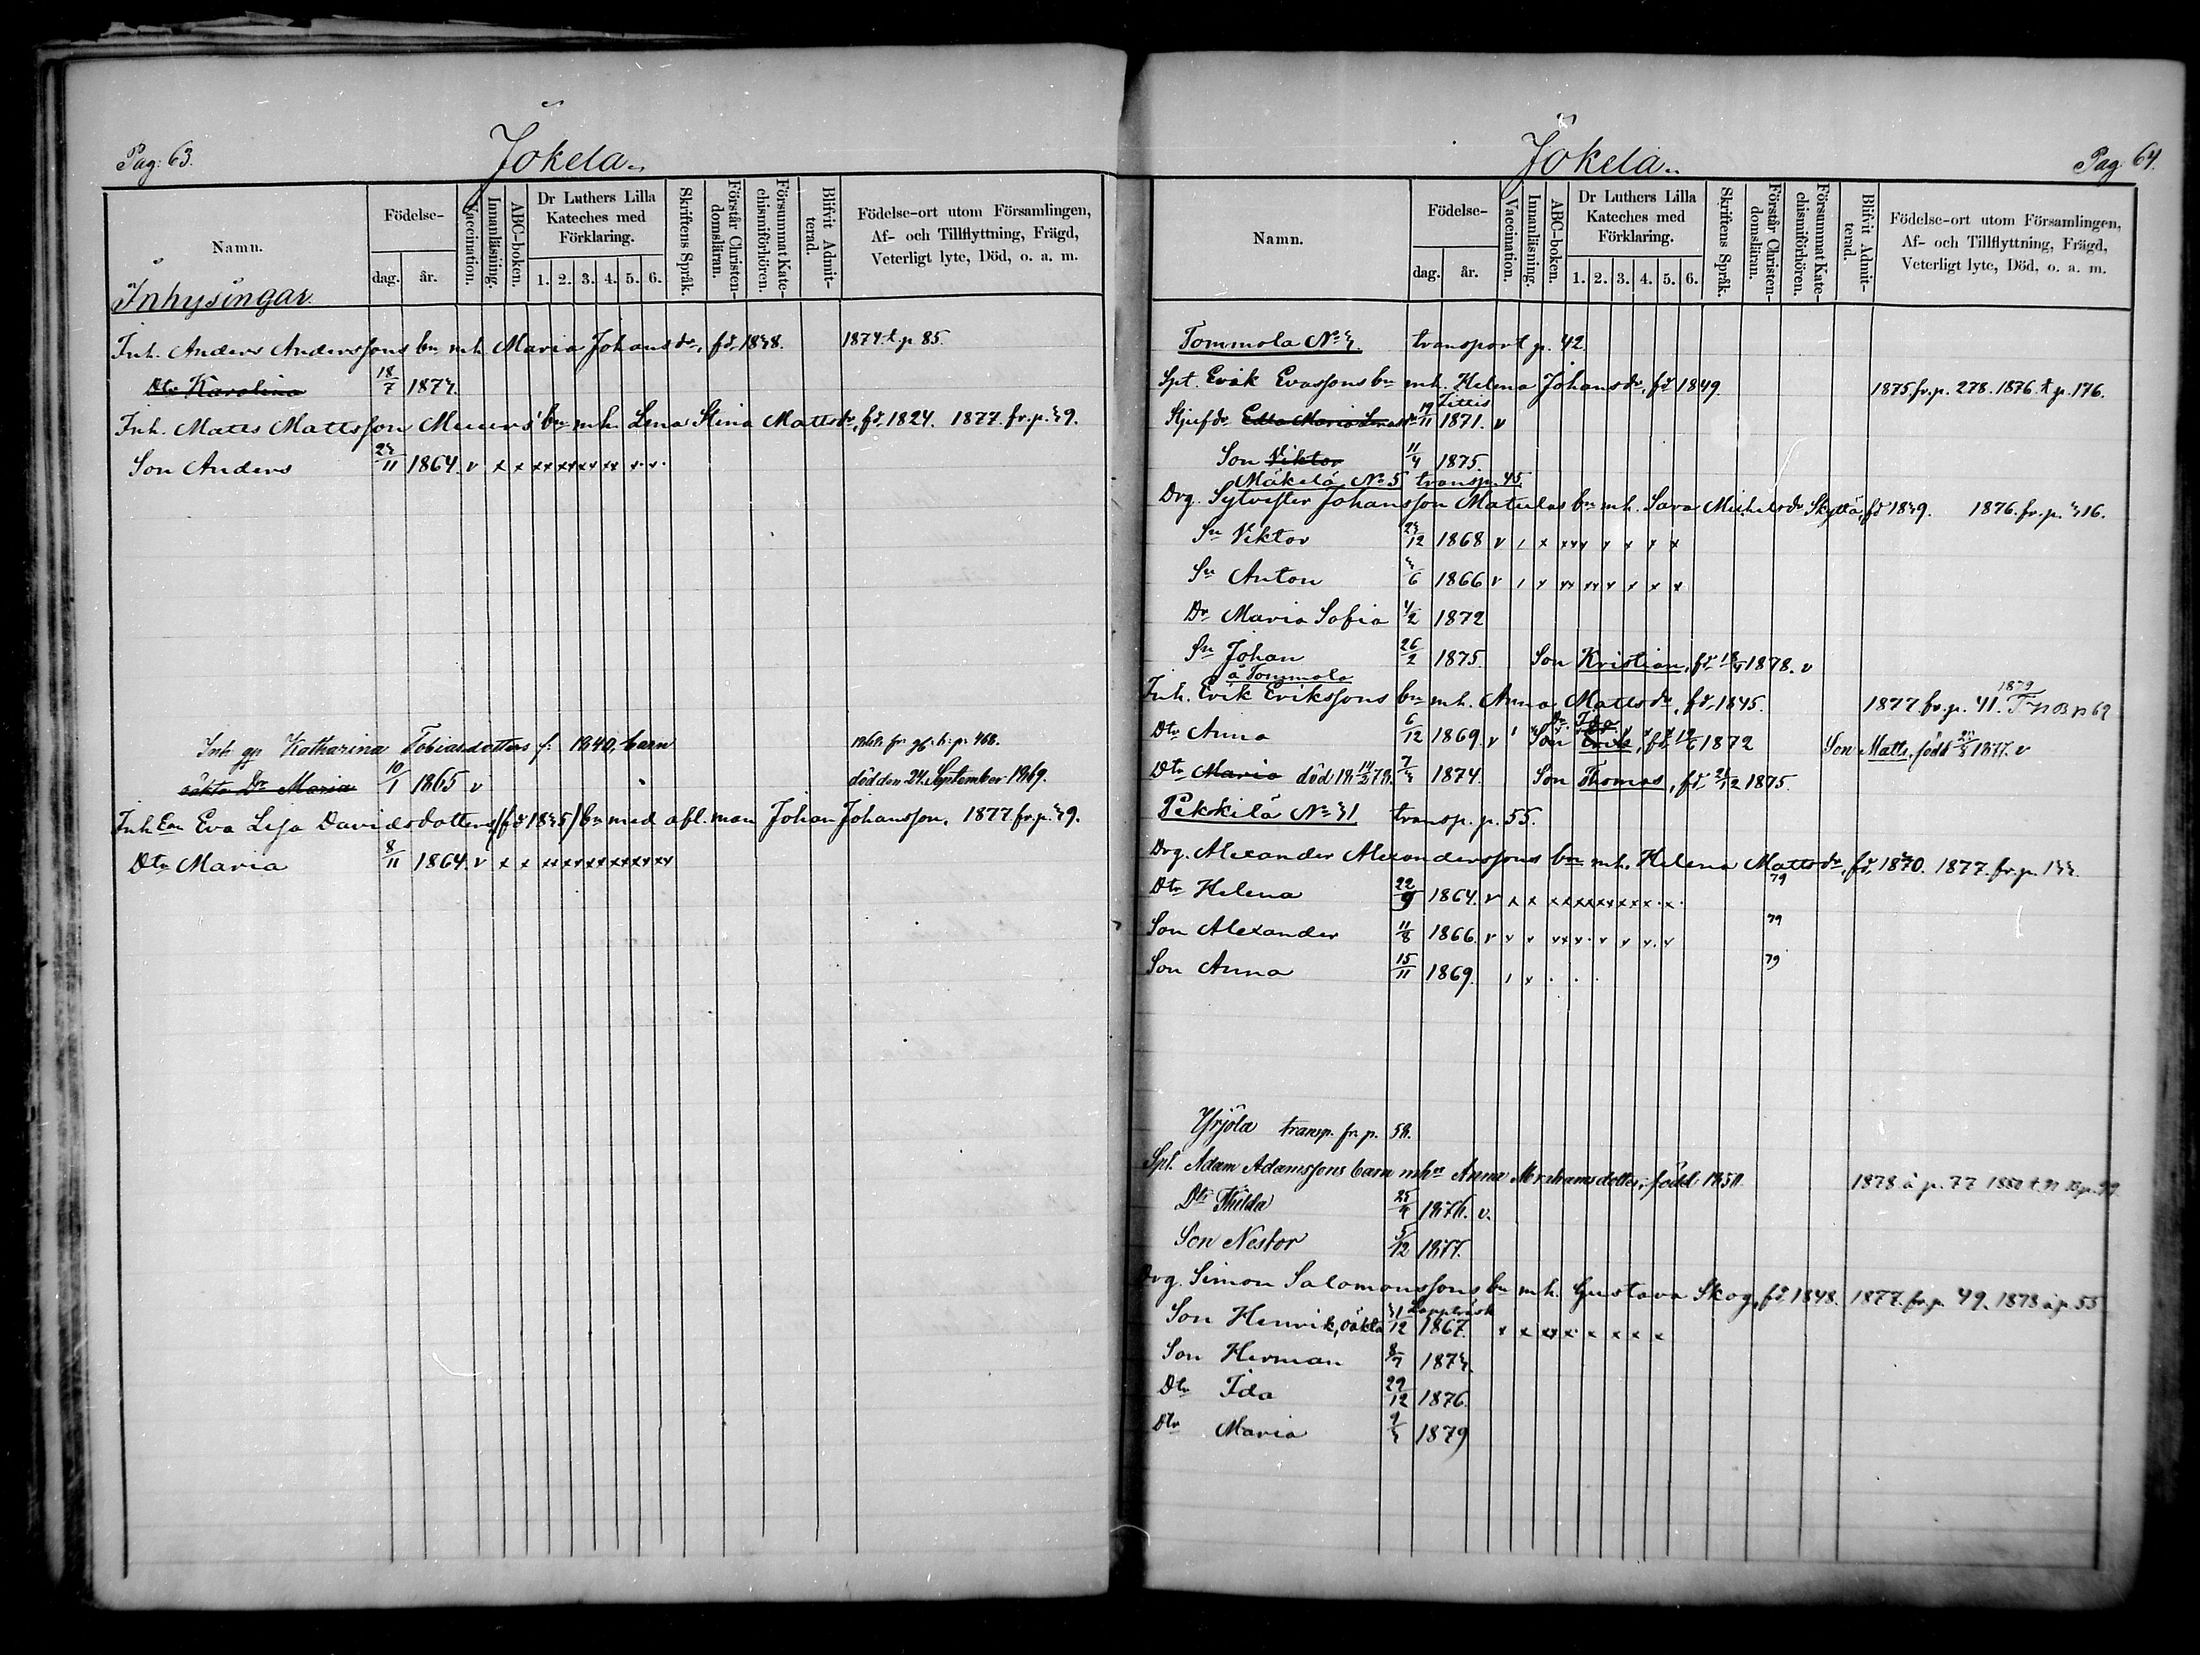 Pag: 63.
Jokela.
Namn.
Födelse-
dag.
år.
Vaccination.
Innanläsning.
ABC-boken.
Dr Luthers Lilla
Kateches med
Förklaring.
1. 2. 3. 4. 5. 6.
Skriftens Språk.
Förstår Christen-
domsläran.
Försummat Kate-
chismiförhören.
Blifvit Admit-
terad.
Födelse-ort utom Församlingen,
Af- och Tillflyttning, Frägd,
Veterligt lyte, Död, o. a. m.
Inhysingar.
Inh. Anders Anderssons bn mh. Maria Johansdr, fd 1838. 1874 t. p. 85.
Dtr Karolina 18/7 1873.
Inh. Matts Mattsson bn mh. Lena Stina Mattsdr, fd. 1824. 1877. fr. p. 39.
Son Anders 23/11 1864. v x x xx xx xx x x x
Inh. gp Katharina Tobiasdotters f: 1840, barn p. 468.
oäkta Dr Maria 10/1 1865 v död den 24. September 1869.
Inh. Enk Eva Lisa Davidsdotters (fd 1835) bn med afl. man Johan Johansson. 1877. fr. p. 39.
Dtr Maria 8/11 1864. v x x xx xx xx xx xx xx
Jokela.
Pag: 64.
Namn.
Födelse-
dag.
år.
Vaccination.
Innanläsning.
ABC-boken.
Dr Luthers Lilla
Kateches med
Förklaring.
1. 2. 3. 4. 5. 6.
Skriftens Språk.
Förstår Christen-
domsläran.
Försummat Kate-
chismiförhören.
Blifvit Admit-
terad.
Födelse-ort utom Församlingen,
Af- och Tillflyttning, Frägd,
Veterligt lyte, Död, o. a. m.
Tommola No 3. transport p. 42.
Spt. Erik Evassons bn mh. Helena Johansdr, fd 1849. 1875. fr. p. 278. 1876. t. p. 176.
Stjufdr Edla Maria 19/11 Jittis 1871. v
Son Viktor 11/4 1875.
Mäkelä No 5 transp. 45.
Drg. Sylvester Johansson Matulas bn mh. Sara Michelsdr Skyttä, fd 1839. 1876. fr. p. 316.
Sn Viktor 23/12 1868 v / x xxx x x x x
Sn Anton 3/6 1866 v / x xx xx x x x x
Dr Maria Sofia 4/2 1872
Sn Johan 26/2 1875. Son Kristian, fd 1878. v
å Tommola
Inh. Erik Erikssons bn mh. Anna Mattsdr, fd. 1845. 1877 fr. p. 41. 1879
Dtr Anna 6/12 1869. v Dr Ida Son Erik, fd. 1872 Son Matts, född 1877. v
Dtr Maria död 7/3 1874. Son Thomas, fd 21/12 1875.
Pekkilä No 31 transp. p. 55.
Drg. Alexander Alexanderssons bn mh. Helena Mattsdr, fd. 1830. 1877. fr. p. 133.
Dtr Helena 22/9 1864. v x x xx xx xx x x x 79
Son Alexander 11/8 1866. v x x xx x x x x x 79
Son Anna 15/11 1869. / x . . . 79
Yrjölä transp. fr. p. 58.
Spt. Adam Adamssons barn mhu Anna Abrahamsdotter, född 1850. 1878 å p. 77
Dtr Hilda 1876. v.
Son Nestor 5/12 1877.
Drg. Simon Salomonssons bn mh. Gustava Skog, fd. 1848. 1877. fr. p. 49. 1878 å p. 55
Son Henrik, oäkta 31/12 Lappträsk 1867 x x xx x x x x x
Son Herman 8/7 1873.
Dtr Ida 29/12 1876.
Dtr Maria 9/3 1879